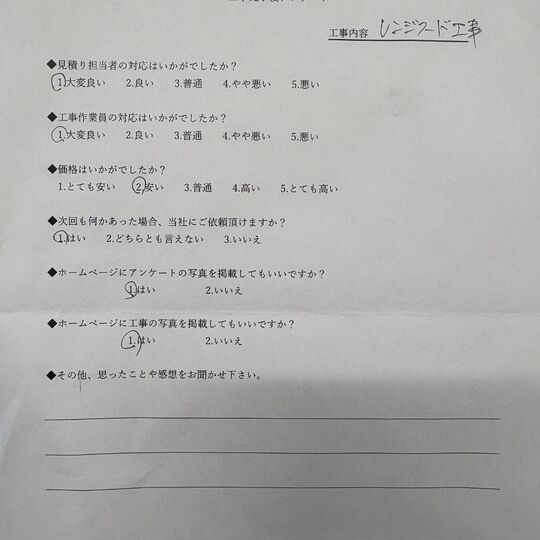 工事内容 レンジフード工事
◆見積り担当者の対応はいかがでしたか？
1.大変良い 2.良い 3.普通 4.やや悪い 5.悪い
◆工事作業員の対応はいかがでしたか？
1.大変良い 2.良い 3.普通 4.やや悪い 5.悪い
◆価格はいかがでしたか？
1.とても安い 2.安い 3.普通 4.高い 5.とても高い
◆次回も何かあった場合、当社にご依頼頂けますか？
1.はい 2.どちらとも言えない 3.いいえ
◆ホームページにアンケートの写真を掲載してもいいですか？
1.はい 2.いいえ
◆ホームページに工事の写真を掲載してもいいですか？
1.はい 2.いいえ
◆その他、思ったことや感想をお聞かせ下さい。